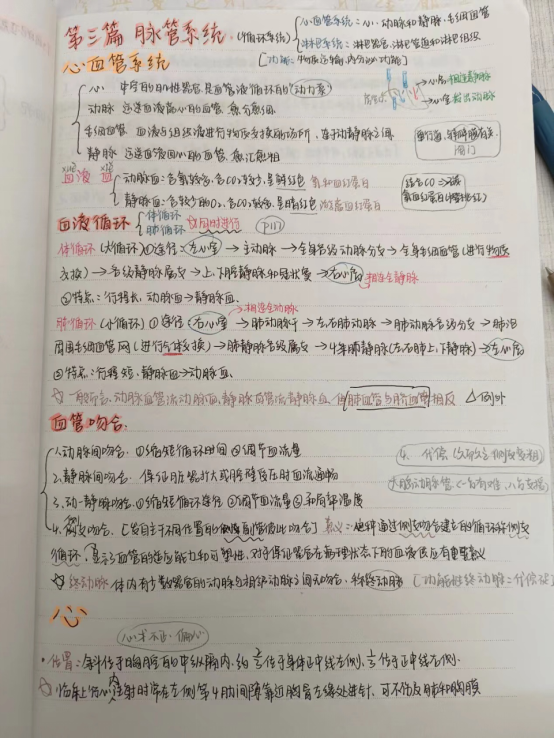 第三篇 脉管系统 (循环系统)
心血管系统:心、动脉和静脉、毛细血管
淋巴系统:淋巴器官、淋巴管道和淋巴组织
[功能:物质运输、内分泌功能]
心血管系统
心 中空的肌性器官,是血管液循环的(动力泵)
动脉 运送血液离心的血管
毛细血管 血液与组织液进行物质交换的场所,连于动静脉之间
静脉 运送血液回心的血管
心房连静脉
心室发出动脉
血液
动脉血:含氧较多,含CO₂较少,呈鲜红色 氧和血红蛋白
静脉血:含较少的O₂,含CO₂较多,呈暗红色 还原血红蛋白
血液循环 体循环
肺循环 同时进行 P111
体循环(大循环)①途径:左心室→主动脉→全身各级动脉分支→全身毛细血管(进行物质
交换)→各级静脉属支→上、下腔静脉和冠状窦→右心房 相连全静脉
②特点:行程长,动脉血→静脉血
相连全动脉
肺循环(小循环)①途径:右心室→肺动脉干→左右肺动脉→肺动脉各级分支→肺泡
周围毛细血管网(进行气体交换)→肺静脉各级属支→4条肺静脉(左右肺上、下静脉)→左心房
②特点:行程短,静脉血→动脉血
☆一般而言,动脉血管流动脉血,静脉血管流静脉血,但肺血管与脐血管相反 △例外
血管吻合
1.动脉间吻合 ①缩短循环时间②调节血流量
2.静脉间吻合 保证脏器扩大或腔壁受压时血流通畅
3.动-静脉吻合 ①缩短循环途径②调节血流量③和局部温度
4.侧支吻合 [发自主干不同位置的侧副管彼此吻合] 意义:这种通过侧支吻合建立的循环称侧支
循环,显示了血管的适应能力和可塑性,对于保证器官在病理状态下的血液供应有重要意义
☆终动脉 体内有少数器官的动脉与相邻动脉之间无吻合,称终动脉
心
心术不正·偏心
•位置:斜位于胸腔的中纵隔内,约2/3位于身体正中线左侧,1/3位于正中线右侧.
☆临床上行心内注射时常在左侧第4肋间隙靠近胸骨左缘处进针,可不伤及肺和胸膜